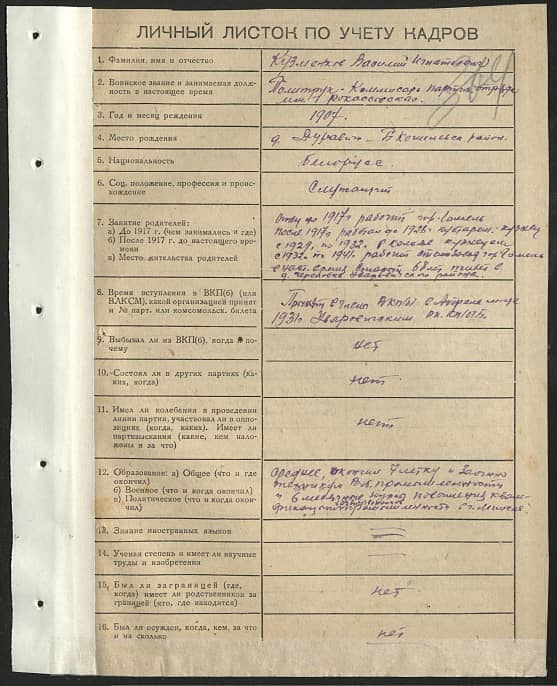 ЛИЧНЫЙ ЛИСТОК ПО УЧЕТУ КАДРОВ
1. Фамилия, имя и отчество
Кузменков Василий Игнатович
2. Воинское звание и занимаемая долж-
ность в настоящее время
Политрук - Комиссар парти. отряда
им. Рокоссовского.
3. Год и месяц рождения
1907.
4. Место рождения
д. Дуравичи - Б. Кошелевск. район.
5. Национальность
Белорус.
6. Соц. положение, профессия и проис-
хождение
Служащий
7. Занятие родителей:
а) До 1917 г. (чем занимались и где)
б) После 1917 г. до настоящего вре-
мени
в) Место жительства родителей
Отец до 1917г рабочий гор. Гомель
После 1917г работал до 1928. кустарем: кузнец
с 1929. по 1932. в колхозе кузнецом
с 1932. по 1941. рабочий гор. Гомель
живет в
д. района.
8. Время вступления в ВКП(б) (или
ВЛКСМ), какой организацией принят
и № парт. или комсомольск. билета
Принят в члены ВКП(б) в Апреле м-це
1931г Уваровичским РК. КП(б)Б.
9. Выбывал ли из ВКП(б), когда и по-
чему
нет
10. Состоял ли в других партиях (ка-
ких, когда)
нет
11. Имел ли колебания в проведении
линии партии, участвовал ли в оппо-
зициях (когда, каких). Имеет ли
партвзыскания (какие, кем нало-
жены и за что)
нет
12. Образование: а) Общее (что и где
окончил)
б) Военное (что и когда окончил)
в) Политическое (что и когда окон-
чил)
Среднее окончил 7 летку и Заочно
техникум промышленности
и 6 месячные курсы повышения квали-
фикации промышленности
13. Знание иностранных языков
14. Ученая степень и имеет ли научные
труды и изобретения
15. Был ли заграницей (где,
когда) имеет ли родственников за
границей (кто, где находится)
нет
16. Был ли осужден, когда, кем, за что
и на сколько
нет